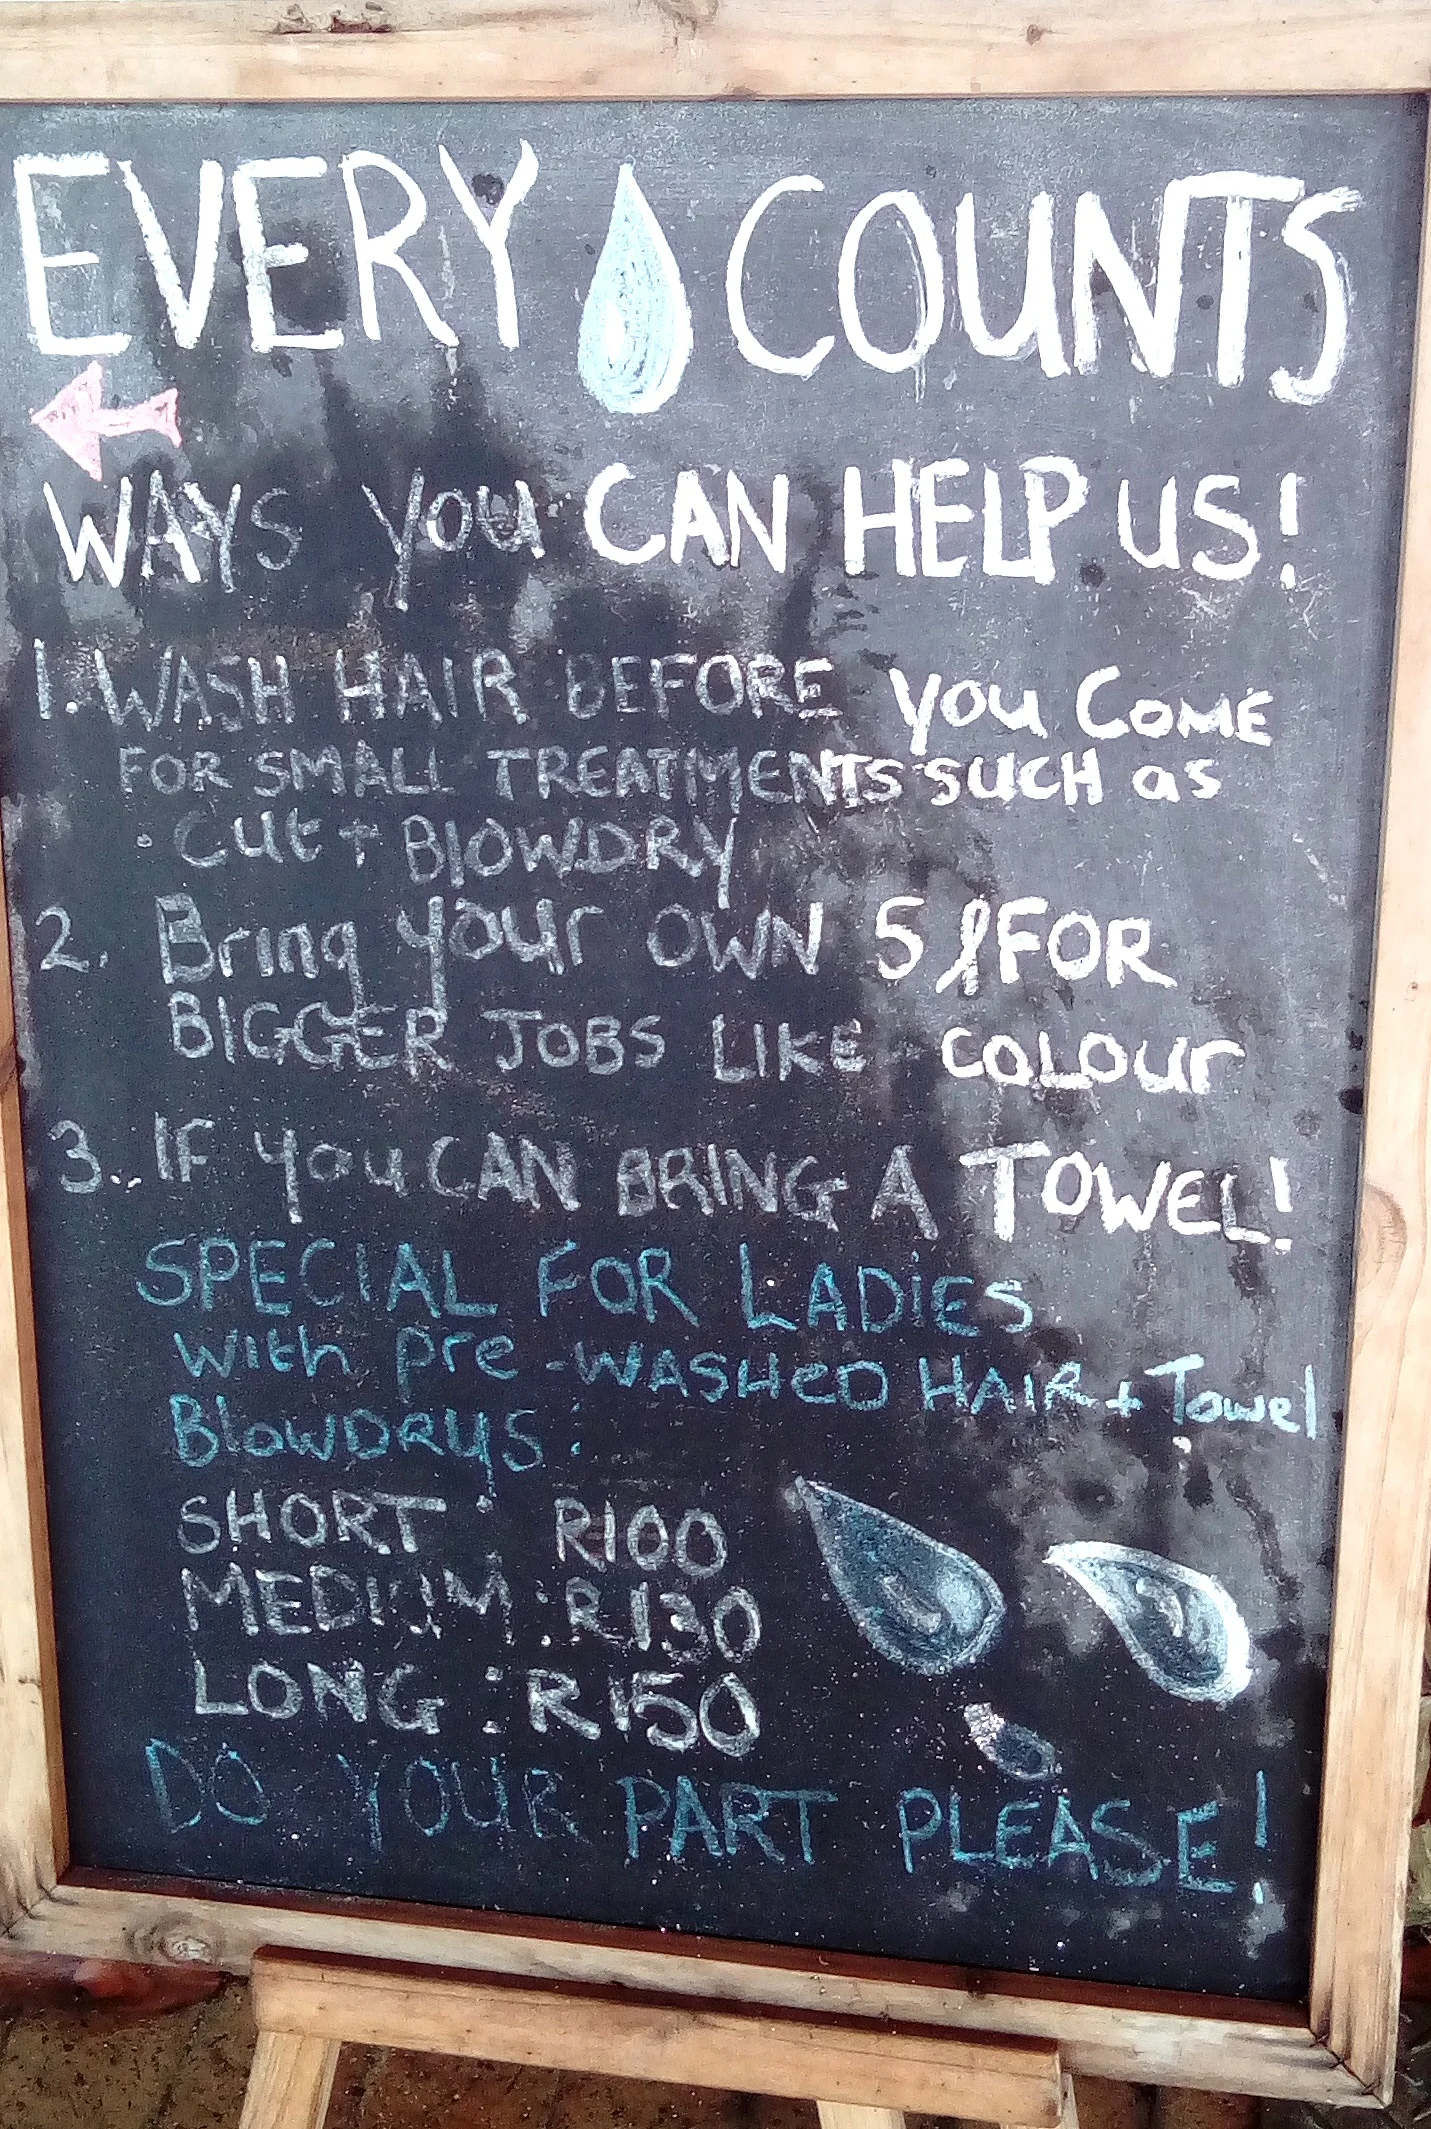 EVERY COUNTS
WAYS YOU CAN HELP US!
1. WASH HAIR BEFORE YOU COME
FOR SMALL TREATMENTS SUCH as
· Cut + BlOWDRY
2. Bring your OWN 5 ℓ FOR
BIGGER JOBS LIKE COLOUR
3.. IF you CAN BRING A TOWEL!
SPECIAL FOR LADiES
with pre-WASHeD HAIR + Towel
BlowDRYS:
SHORT : R100
MEDIUM : R130
LONG : R150
DO YOUR PART PLEASE!